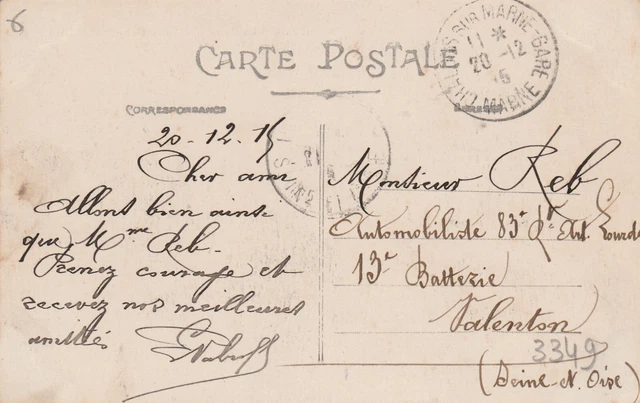 6
CARTE POSTALE
CHALONS SUR MARNE-GARE
11 *
20 -12
15
MARNE
CORRESPONDANCE
ADRESSE
20-12-15
Cher ami
Allons bien ainsi
que Mme Reb.
Prenez courage et
recevez nos meilleures
amitiés
Monsieur Reb
Automobiliste 83e Rt Art. Lourde
13e Batterie
Valenton
3349
(Seine-et-Oise)